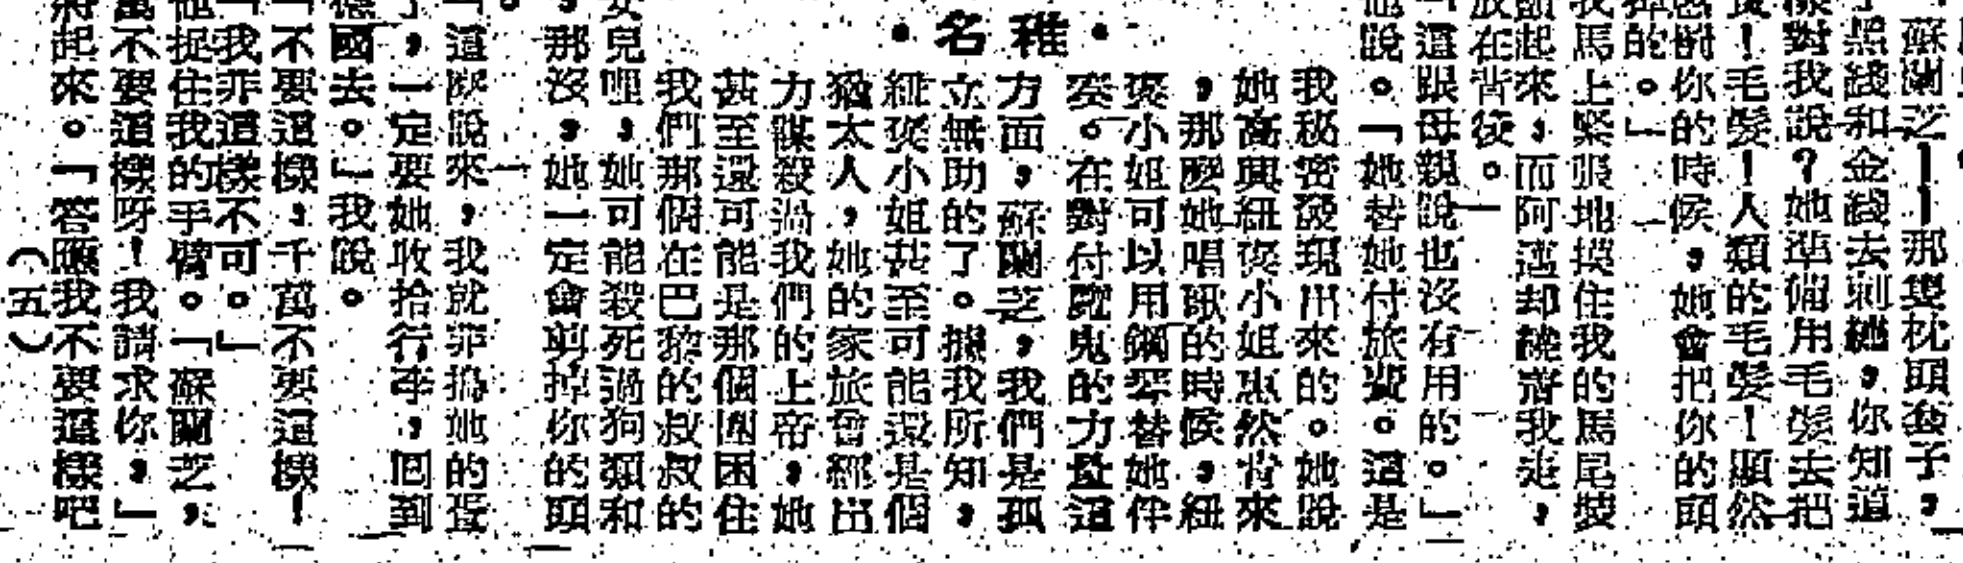 蘇蘭芝——那雙枕頭套子，
黑綫和金綫去刺繡，你知道
樣對我說？她準備用毛髮去把
！毛髮！人類的毛髮！顯然
你的時候，她會把你的頭
掉的。」
我馬上緊張地摸住我的馬尾髮
起來，而阿邁却我走，
放在背後。
「這跟母親說也沒有用的。」
他說。「她替她付旅費。這是
・稚名・
我秘密發現出來的。她說
她高興紐煲小姐忽然肯來
，那麼她唱歌的時候，紐
煲小姐可以用鋼琴替她伴
奏。在對付魔鬼的力量這
方面，蘇蘭芝，我們是孤
立無助的了。據我所知，
紐煲小姐甚至可能還是個
猶太人，她的家族曾經出
力謀殺過我們的上帝，她
甚至還可能是那個圍困住
我們那個在巴黎的叔叔的
女兒哩，她可能殺死過狗類和
那沒，她一定會剪掉你的頭
。
「這麽說來，我就非搗她的蛋
了，一定要她收拾行李，回到
德國去。」我說。
「不要這樣，千萬不要這樣！
「我非這樣不可。」
他捉住我的手臂。「蘇蘭芝，
萬不要這樣呀！我請求你，」
將起來。「答應我不要這樣吧
（五）